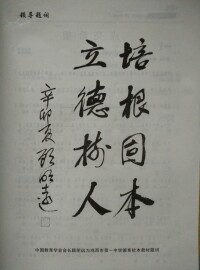 领导题词
培根固本
立德树人
辛卯夏 顾明远
中国教育学会会长顾明远为
第一中学
校本教材题词